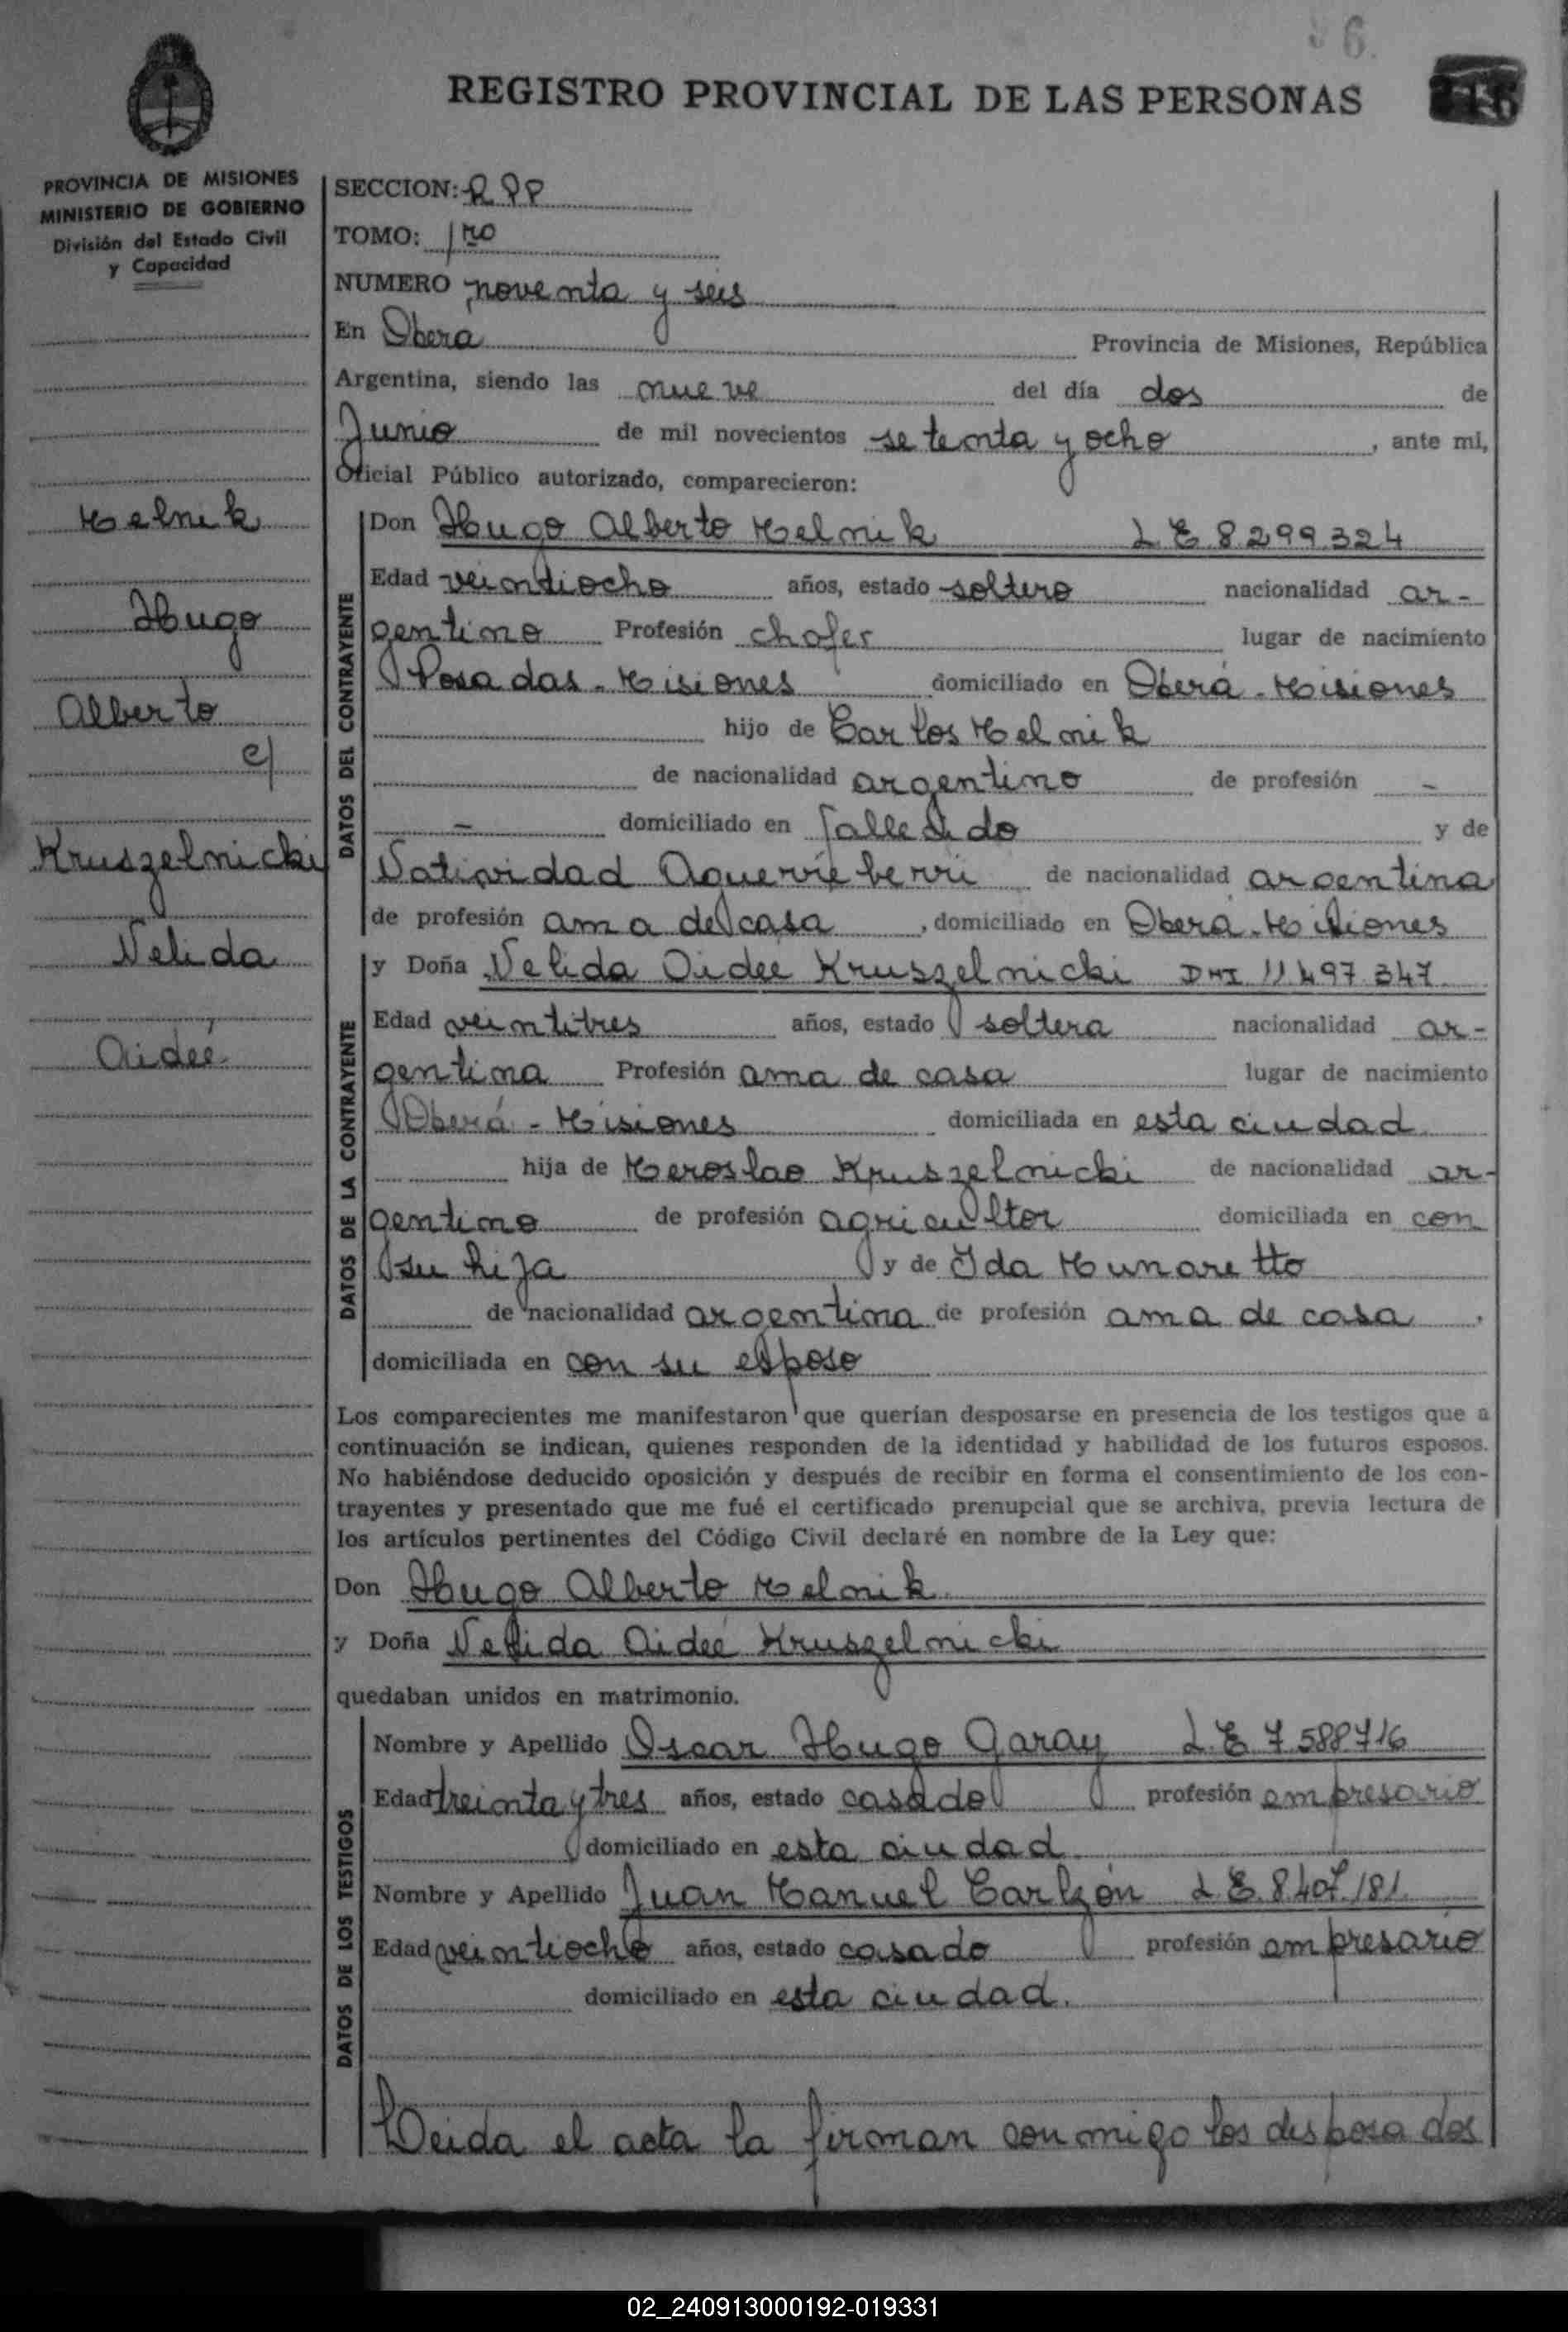 96.
REGISTRO PROVINCIAL DE LAS PERSONAS
PROVINCIA DE MISIONES
MINISTERIO DE GOBIERNO
División del Estado Civil
y Capacidad
Melnik
Hugo
Alberto
c/
Kruszelnicki
Nelida
Aideé
SECCION: R P P
TOMO: 1ro
NUMERO noventa y seis
En Obera Provincia de Misiones, República
Argentina, siendo las nueve del día dos de
Junio de mil novecientos setenta y ocho, ante mi,
Oficial Público autorizado, comparecieron:
DATOS DEL CONTRAYENTE
Don Hugo Alberto Melnik L E 8 299 324
Edad veintiocho años, estado soltero nacionalidad ar-
gentino Profesión chofer lugar de nacimiento
Posadas - Misiones domiciliado en Oberá - Misiones
hijo de Carlos Melnik
de nacionalidad argentino de profesión -
- domiciliado en Fallecido y de
Natividad Aguerrieberri de nacionalidad argentina
de profesión ama de casa, domiciliado en Oberá - Misiones
DATOS DE LA CONTRAYENTE
y Doña Nelida Aidee Kruszelnicki DNI 11 497 347
Edad veintitres años, estado soltera nacionalidad ar-
gentina Profesión ama de casa lugar de nacimiento
Oberá - Misiones domiciliada en esta ciudad
hija de Meroslao Kruszelnicki de nacionalidad ar-
gentino de profesión agricultor domiciliada en con
su hija y de Ida Munaretto
de nacionalidad argentina de profesión ama de casa,
domiciliada en con su esposo
Los comparecientes me manifestaron que querían desposarse en presencia de los testigos que a
continuación se indican, quienes responden de la identidad y habilidad de los futuros esposos.
No habiéndose deducido oposición y después de recibir en forma el consentimiento de los con-
trayentes y presentado que me fué el certificado prenupcial que se archiva, previa lectura de
los artículos pertinentes del Código Civil declaré en nombre de la Ley que:
Don Hugo Alberto Melnik
y Doña Nelida Aideé Kruszelnicki
quedaban unidos en matrimonio.
DATOS DE LOS TESTIGOS
Nombre y Apellido Oscar Hugo Garay L.E 7 588 716
Edad treinta y tres años, estado casado profesión empresario
domiciliado en esta ciudad
Nombre y Apellido Juan Manuel L.E. 8.407.181
Edad veintiocho años, estado casado profesión empresario
domiciliado en esta ciudad.
Leida el acta la firman conmigo los desposados
02_240913000192-019331